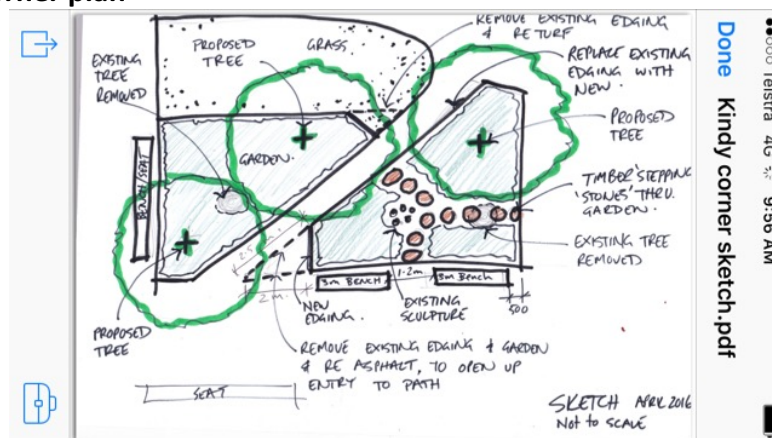 REMOVE EXISTING EDGING
& RETURF
GRASS
PROPOSED
TREE
EXISTING
TREE
REMOVED
REPLACE EXISTING
EDGING WITH
NEW.
PROPOSED
TREE
GARDEN.
BENCH/SEAT
TIMBER 'STEPPING
'STONES' THRU.
GARDEN.
EXISTING TREE
REMOVED
2.5m
2m.
3m BENCH
1.2m
3m Bench
500
NEW
EDGING.
EXISTING
SCULPTURE
PROPOSED
TREE
REMOVE EXISTING EDGING & GARDEN
& RE ASPHALT, TO OPEN UP
ENTRY TO PATH
SEAT
SKETCH APRIL 2016
Not to SCALE
Done
Kindy corner sketch.pdf
Telstra 4G 9:56 AM